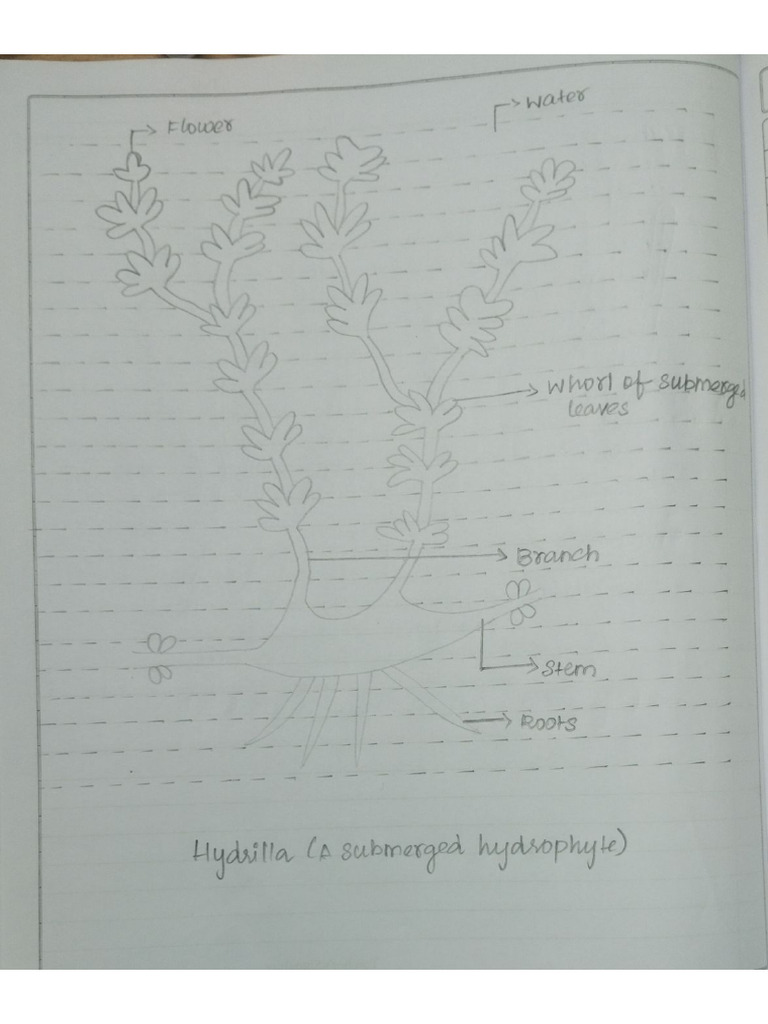 Flower
Water
Whorl of submerged
leaves
Branch
Stem
Roots
Hydrilla (A submerged hydrophyte)